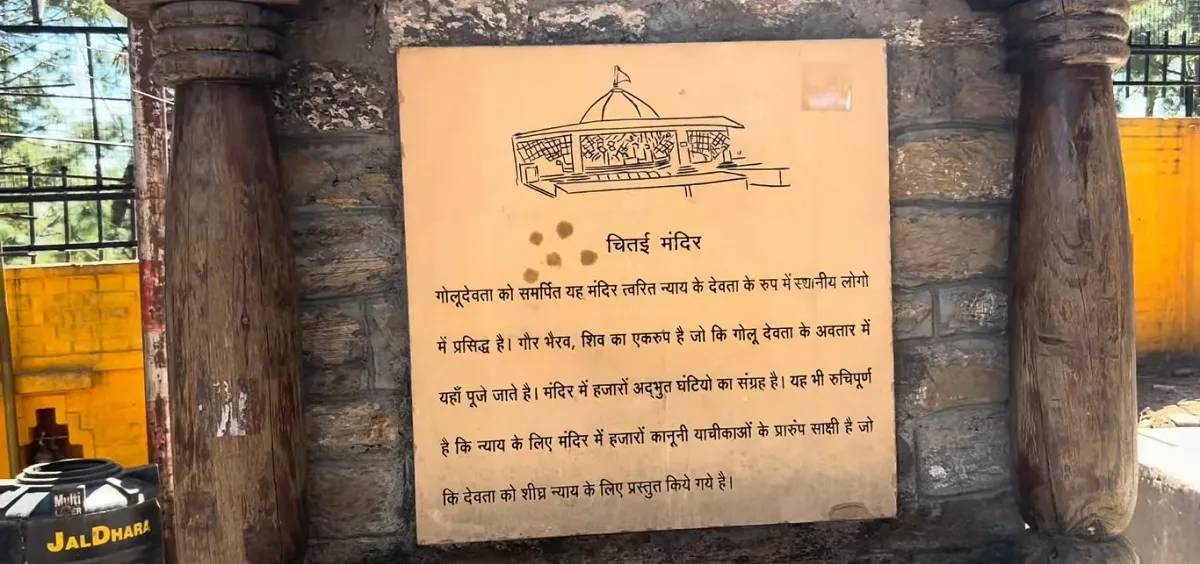 चितई मंदिर
गोलूदेवता को समर्पित यह मंदिर त्वरित न्याय के देवता के रुप में स्थानीय लोगो
में प्रसिद्ध है। गौर भैरव, शिव का एकरुप है जो कि गोलू देवता के अवतार में
यहाँ पूजे जाते है। मंदिर में हजारों अद्भुत घंटियो का संग्रह है। यह भी रुचिपूर्ण
है कि न्याय के लिए मंदिर में हजारों कानूनी याचीकाओं के प्रारुंप साक्षी है जो
कि देवता को शीघ्र न्याय के लिए प्रस्तुत किये गये है।
Multi
LAYER
JALDHARA